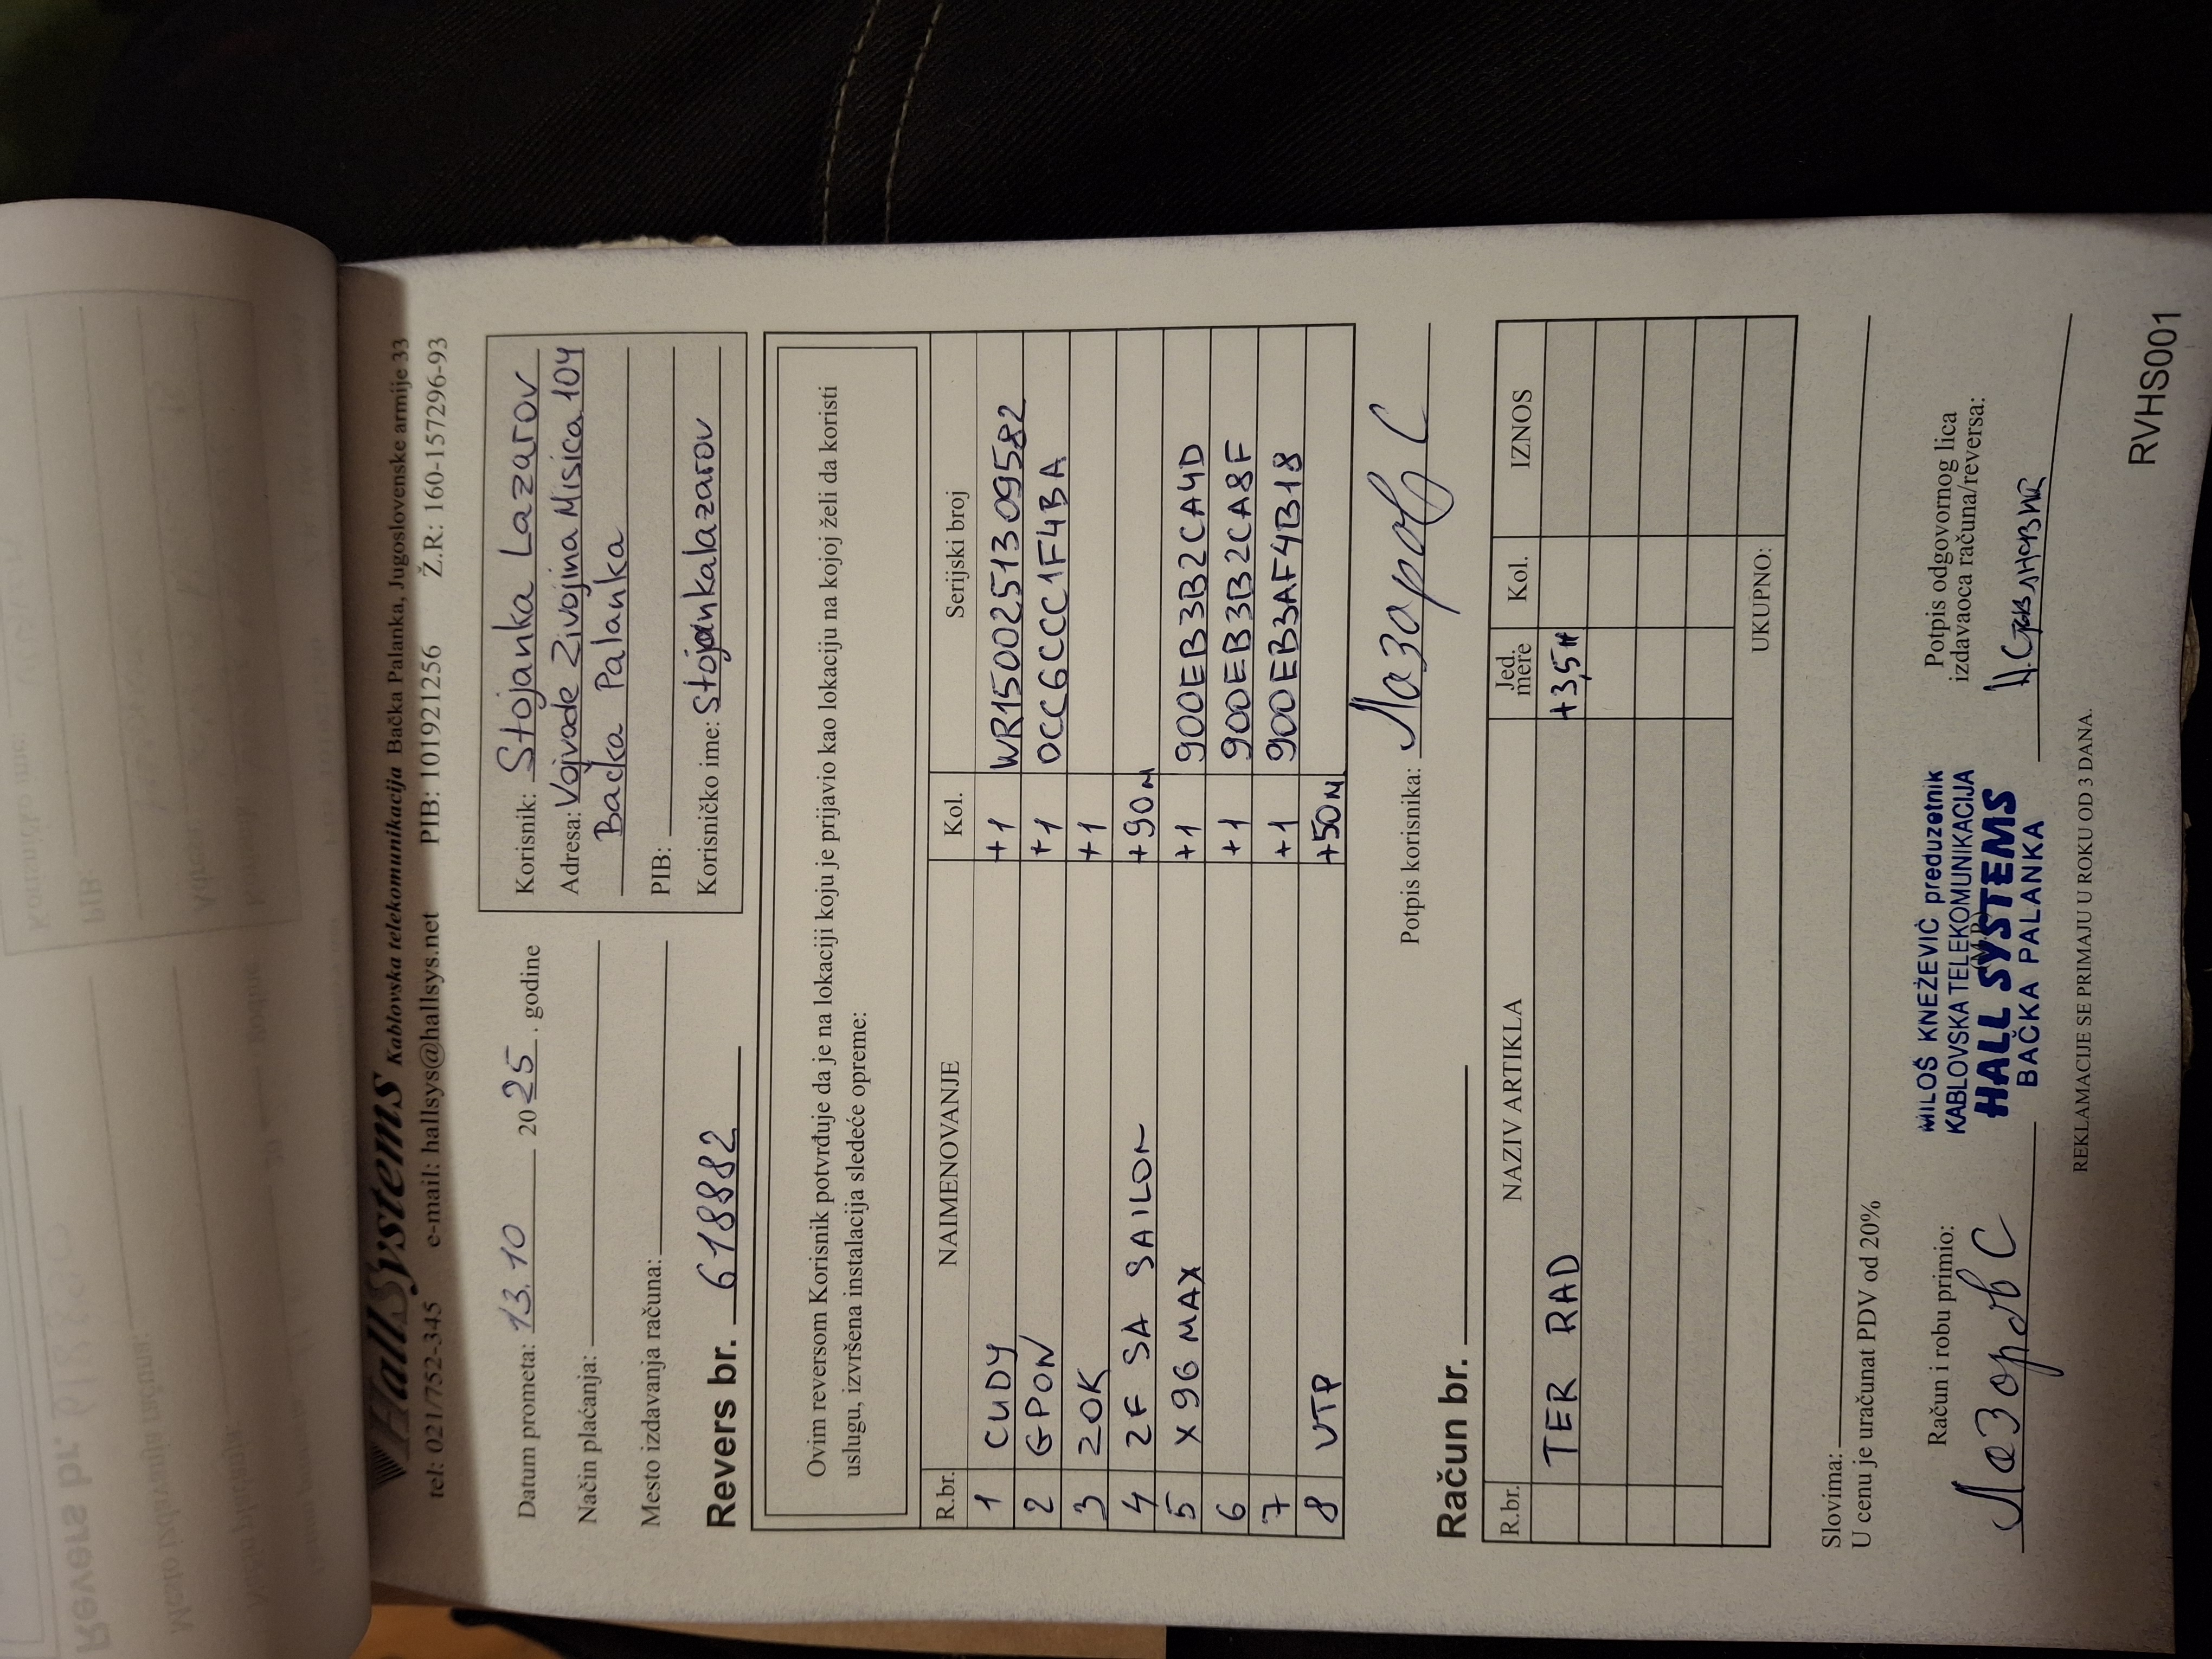 HallSystems Kablovska telekomunikacija Bačka Palanka, Jugoslovenske armije 33
tel: 021/752-345 e-mail: hallsys@hallsys.net PIB: 101921256 Ž.R.: 160-157296-93
Datum prometa: 13.10 2025. godine
Način plaćanja:
Mesto izdavanja računa:
Revers br. 618882
Korisnik: Stojanka Lazarov
Adresa: Vojvode Zivojina Misica 104
Bačka Palanka
PIB:
Korisničko ime: Stojankalazarov
Ovim reversom Korisnik potvrđuje da je na lokaciji koju je prijavio kao lokaciju na kojoj želi da koristi
uslugu, izvršena instalacija sledeće opreme:
R.br. NAIMENOVANJE Kol. Serijski broj
1 CUDY +1 WR1500251309582
2 GPON +1 0CC6CCC1F4BA
3 ZOK +1
4 2F SA SAILOM +90м
5 X96 MAX +1 900EB3B2CA4D
6 +1 900EB3B2CA8F
7 +1 900EB3AF4B18
8 UTP +50м
Potpis korisnika: Лазаров С
Račun br.
R.br. NAZIV ARTIKLA Jed. mere Kol. IZNOS
TER RAD +3,5н
UKUPNO:
Slovima:
U cenu je uračunat PDV od 20%
Račun i robu primio:
Лазаров С
MILOŠ KNEŽEVIĆ preduzetnik
KABLOVSKA TELEKOMUNIKACIJA
HALL SYSTEMS
(M.P.)
BAČKA PALANKA
Potpis odgovornog lica
izdavaoca računa/reversa:
REKLAMACIJE SE PRIMAJU U ROKU OD 3 DANA.
RVHS001